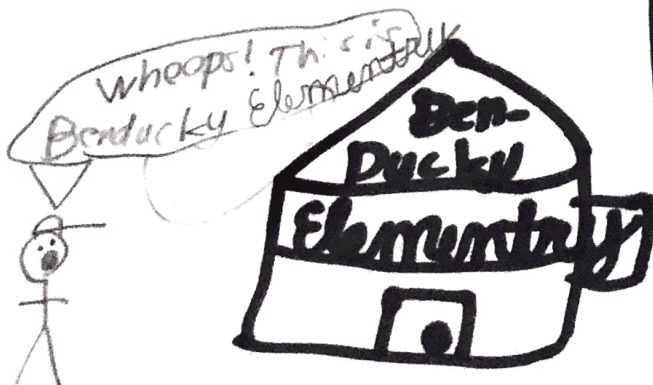 Whoops! This is
Benducky Elementry
Ben-
Ducky
Elementry